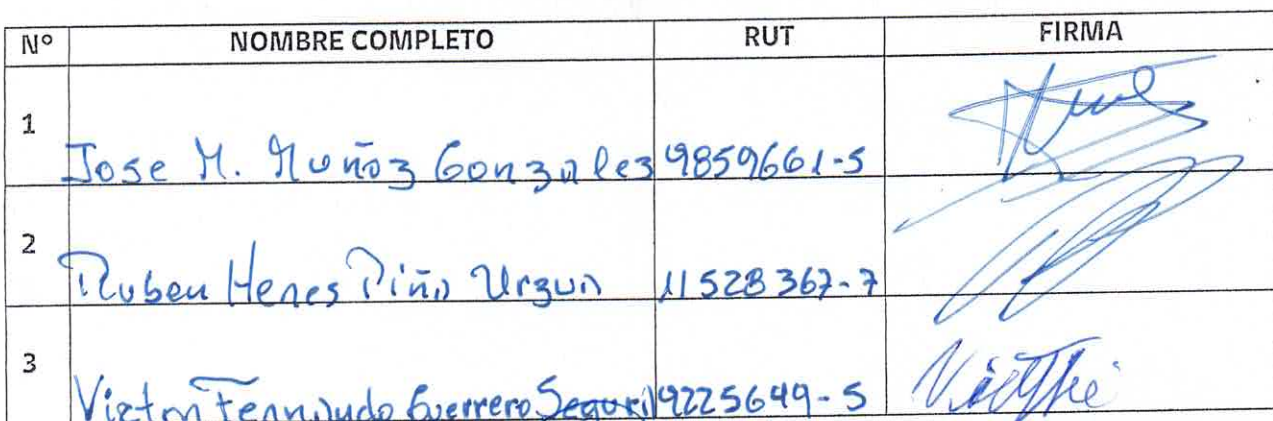 N° NOMBRE COMPLETO RUT FIRMA
1 Jose M. Muñoz Gonzalez 9859661-5
2 Ruben Henes Piño Urzun 11528367-7
3 Victor Fernando Guerrero 9225649-5